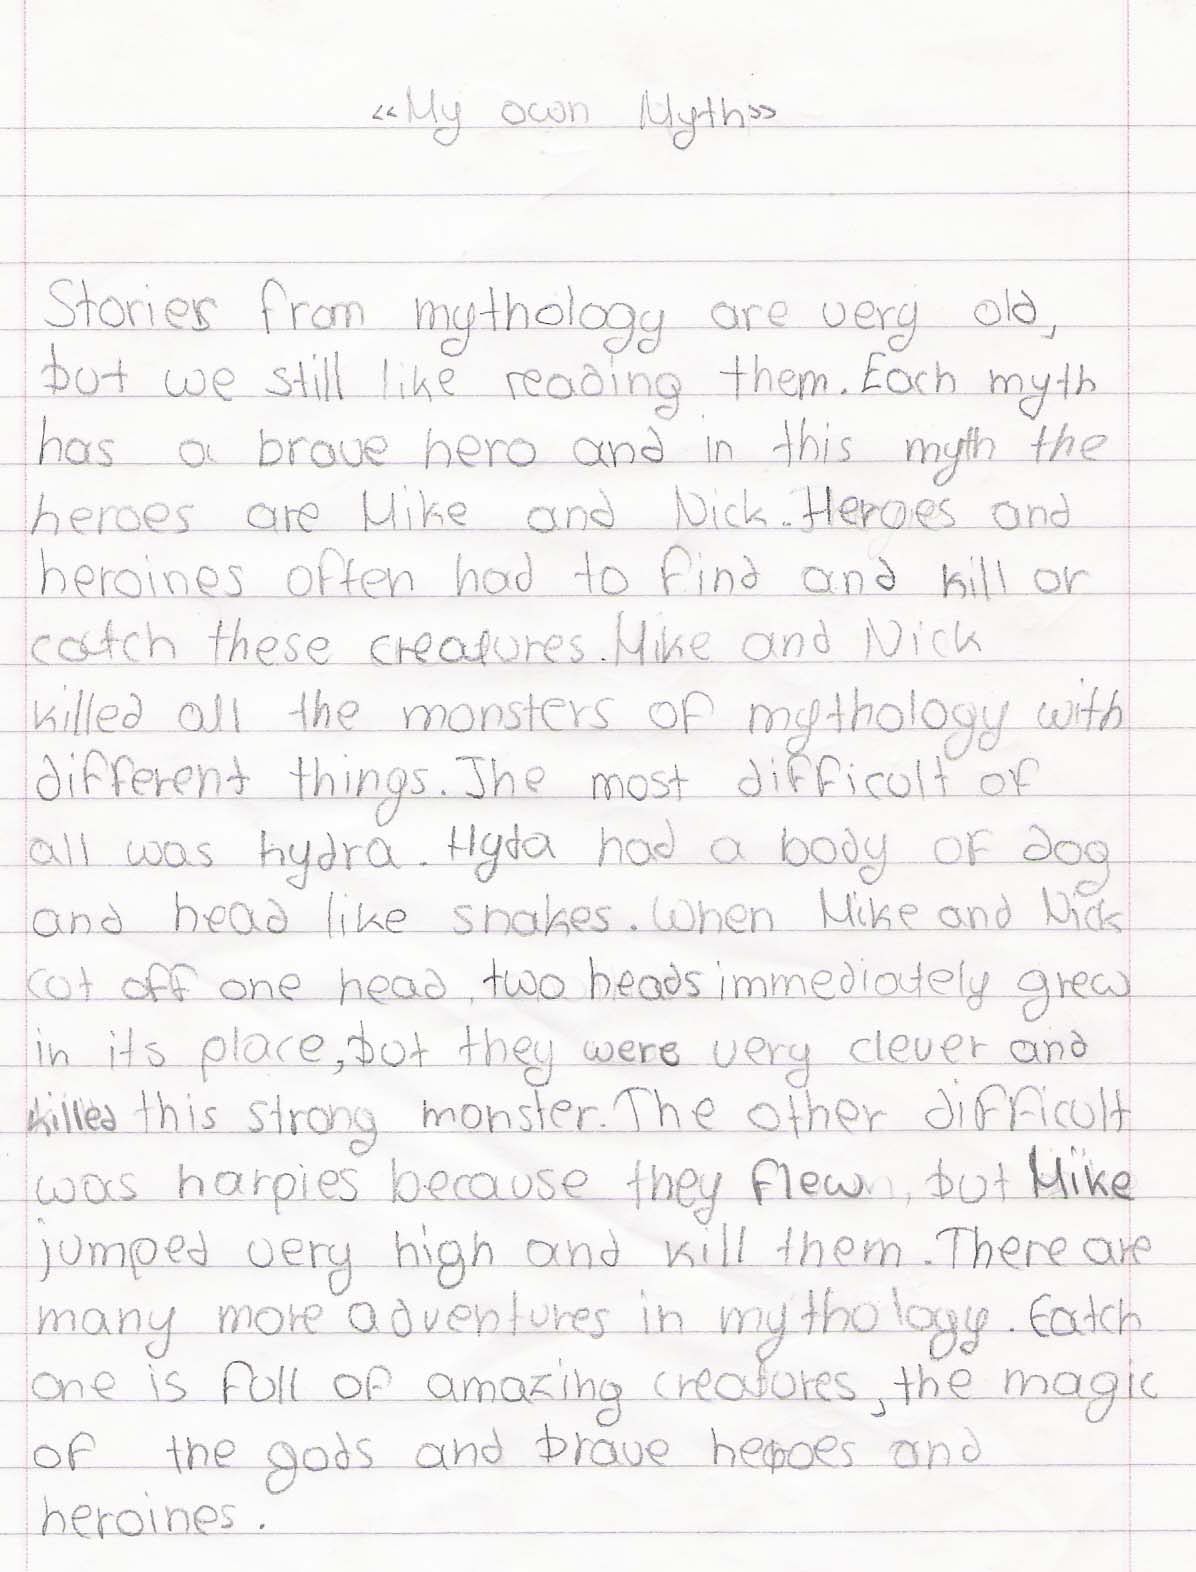 «My own Myth»
Stories from mythology are very old,
but we still like reading them. Each myth
has a brave hero and in this myth the
heroes are Mike and Nick. Heroes and
heroines often had to find and kill or
catch these creatures. Mike and Nick
killed all the monsters of mythology with
different things. The most difficult of
all was hydra. Hyda had a body of dog
and head like snakes. When Mike and Nick
cut off one head, two heads immediately grew
in its place, but they were very clever and
killed this strong monster. The other difficult
was harpies because they flew, but Mike
jumped very high and kill them. There are
many more adventures in mythology. Eatch
one is full of amazing creatures, the magic
of the gods and brave heroes and
heroines.